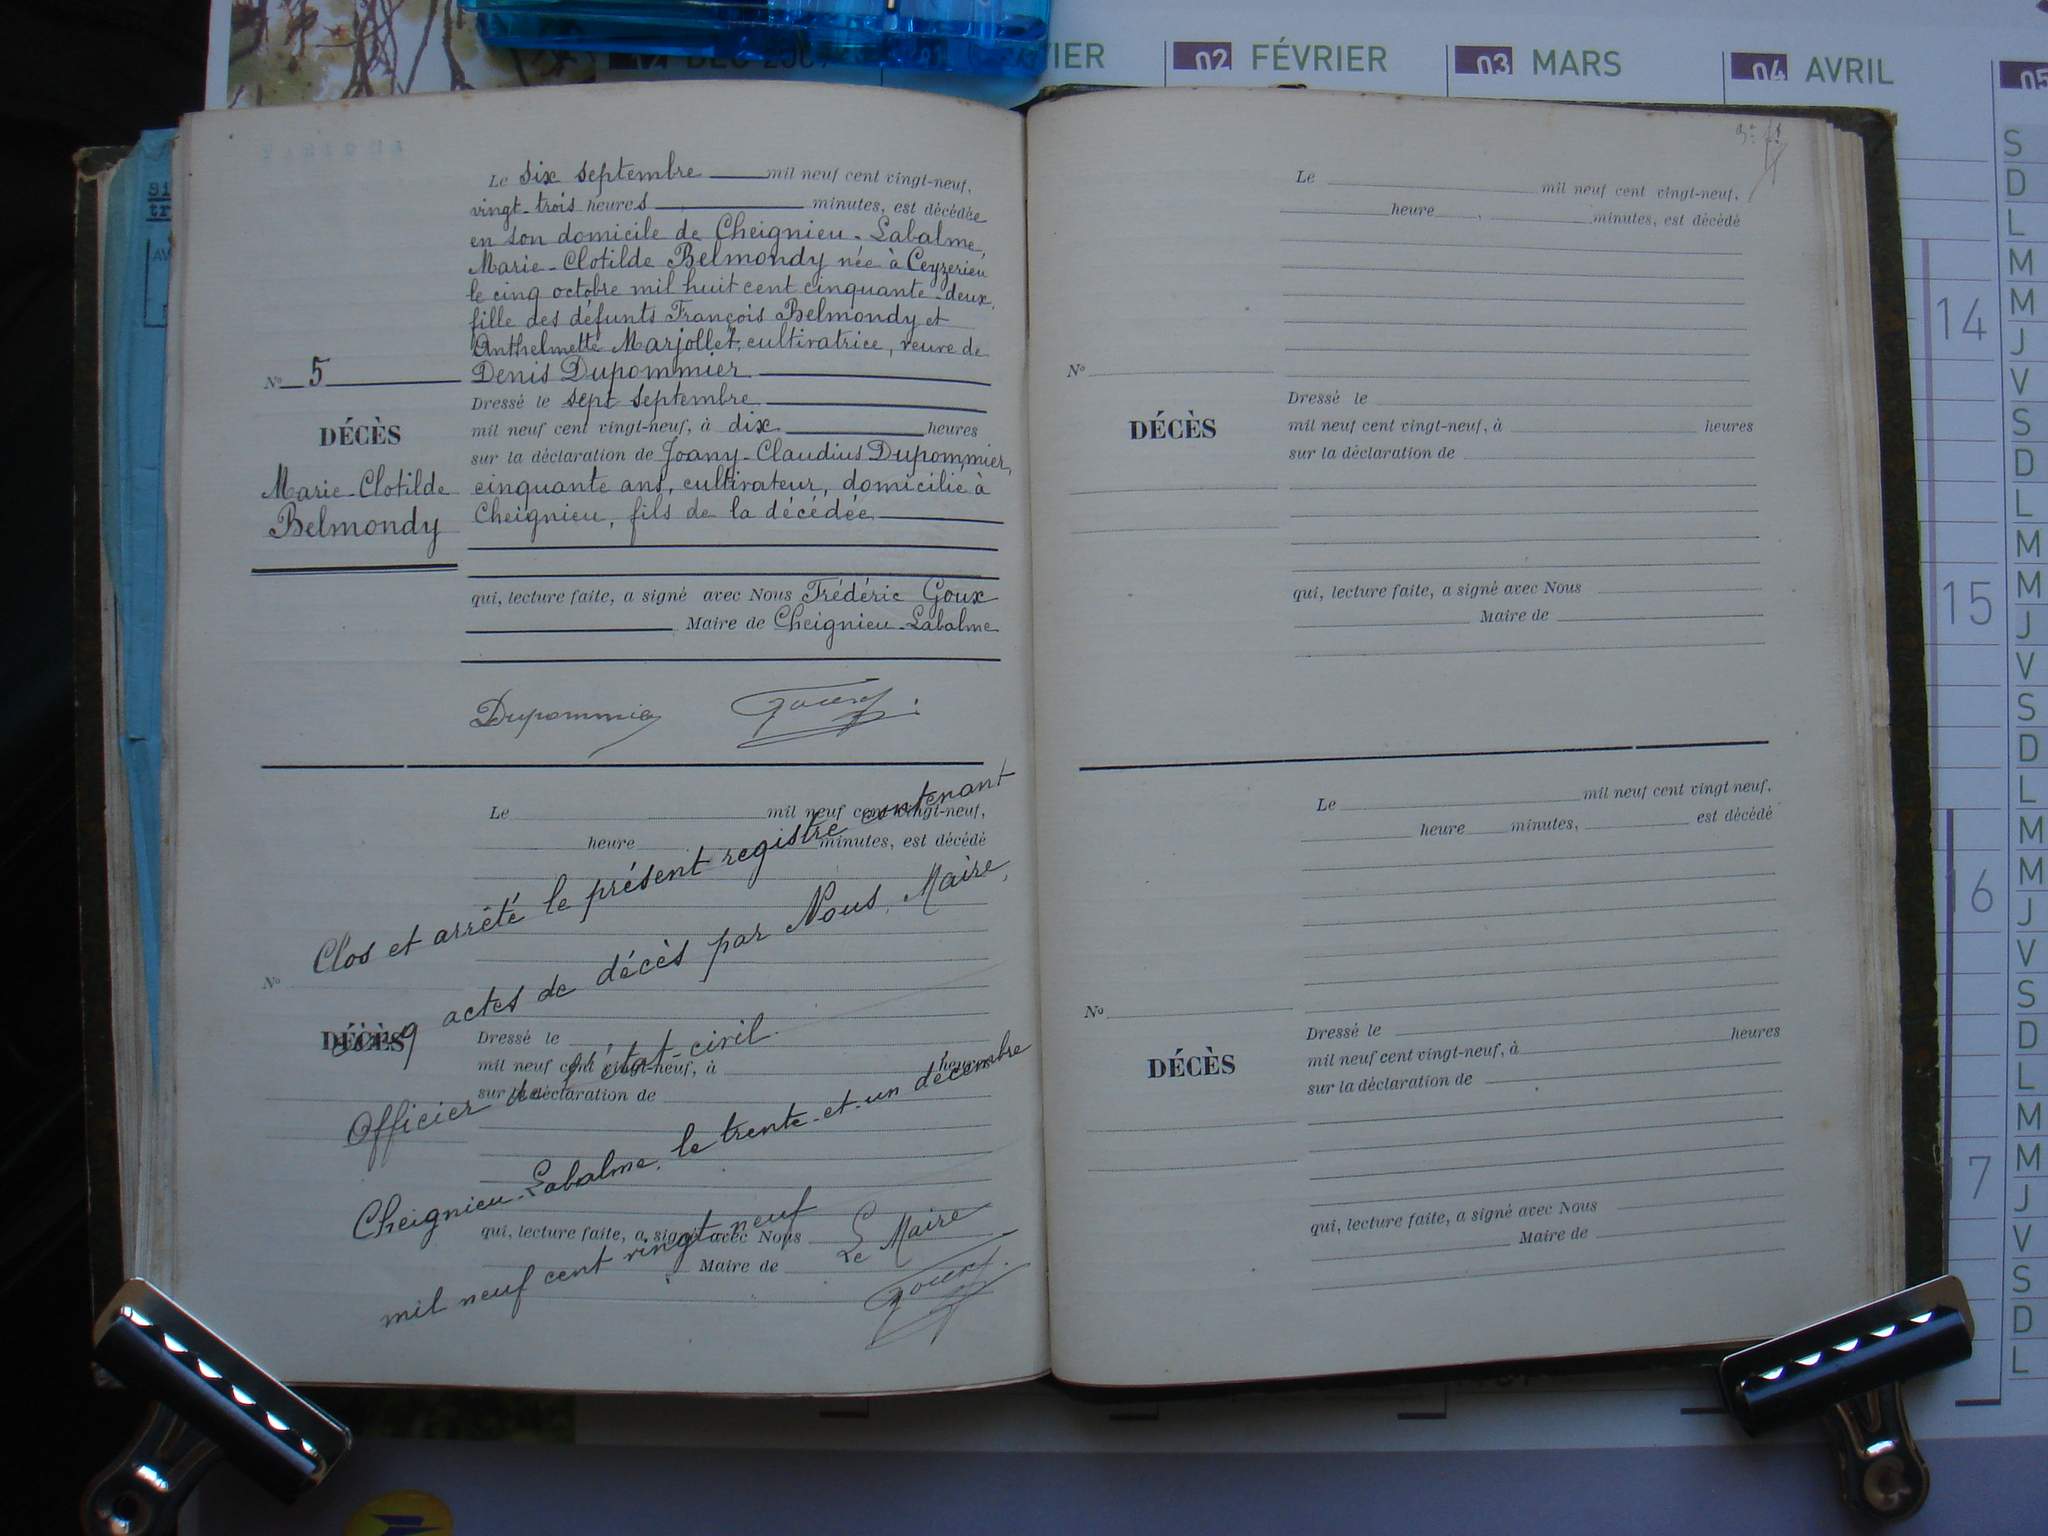 VIER
02 FÉVRIER
03 MARS
04 AVRIL
05
Le six septembre mil neuf cent vingt-neuf,
vingt-trois heures minutes, est décédée
en son domicile de Cheignieu-Labalme,
Marie-Clotilde Belmondy née à Ceyzerieu
le cinq octobre mil huit cent cinquante-deux,
fille des défunts François Belmondy et
Anthelmette Marjollet, cultivatrice, veuve de
Denis Dupommier
No 5
DÉCÈS
Marie-Clotilde
Belmondy
Dressé le sept septembre
mil neuf cent vingt-neuf, à dix heures
sur la déclaration de Joany-Claudius Dupommier,
cinquante ans, cultivateur, domicilié à
Cheignieu, fils de la décédée
qui, lecture faite, a signé avec Nous Frédéric Goux
Maire de Cheignieu-Labalme
Dupommier Goux
Le mil neuf cent vingt-neuf,
heure minutes, est décédé
No
DÉCÈS
Dressé le
mil neuf cent vingt-neuf, à heures
sur la déclaration de
qui, lecture faite, a signé avec Nous
Maire de
Clos et arrêté le présent registre contenant
cinq actes de décès par Nous, Maire,
Officier de l'état-civil.
Cheignieu-Labalme, le trente-et-un décembre
mil neuf cent vingt neuf
Le Maire
Goux
Le mil neuf cent vingt-neuf,
heure, minutes, est décédé
No
DÉCÈS
Dressé le
mil neuf cent vingt-neuf, à heures
sur la déclaration de
qui, lecture faite, a signé avec Nous
Maire de
Le mil neuf cent vingt neuf,
heure minutes, est décédé
No
DÉCÈS
Dressé le
mil neuf cent vingt-neuf, à heures
sur la déclaration de
qui, lecture faite, a signé avec Nous
Maire de
S
D
L
M
M
14
J
V
S
D
L
M
M
15
J
V
S
D
L
M
M
16
J
V
S
D
L
M
M
17
J
V
S
D
L